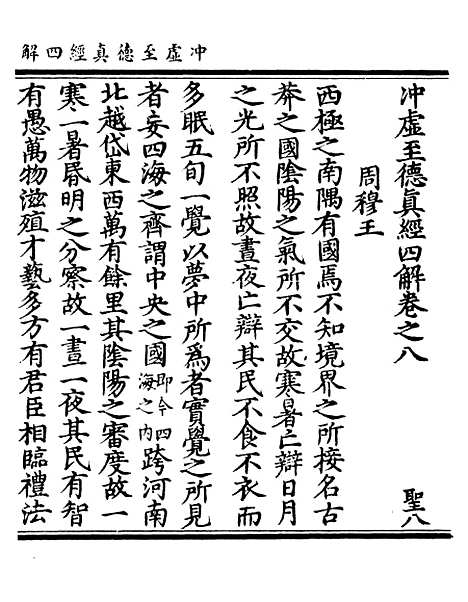 冲虛至德真經四解
冲虛至德真經四解卷之八　聖八
周穆王
西極之南隅有國焉不知境界之所接名古
莽之國陰陽之氣所不交故寒暑亡辯日月
之光所不照故晝夜亡辯其民不食不衣而
多眠五旬一覺以夢中所為者實覺之所見
者妄四海之齊謂中央之國即今四海之內跨河南
北越岱東西萬有餘里其陰陽之審度故一
寒一暑昏明之分察故一晝一夜其民有智
有愚萬物滋殖才藝多方有君臣相臨禮法